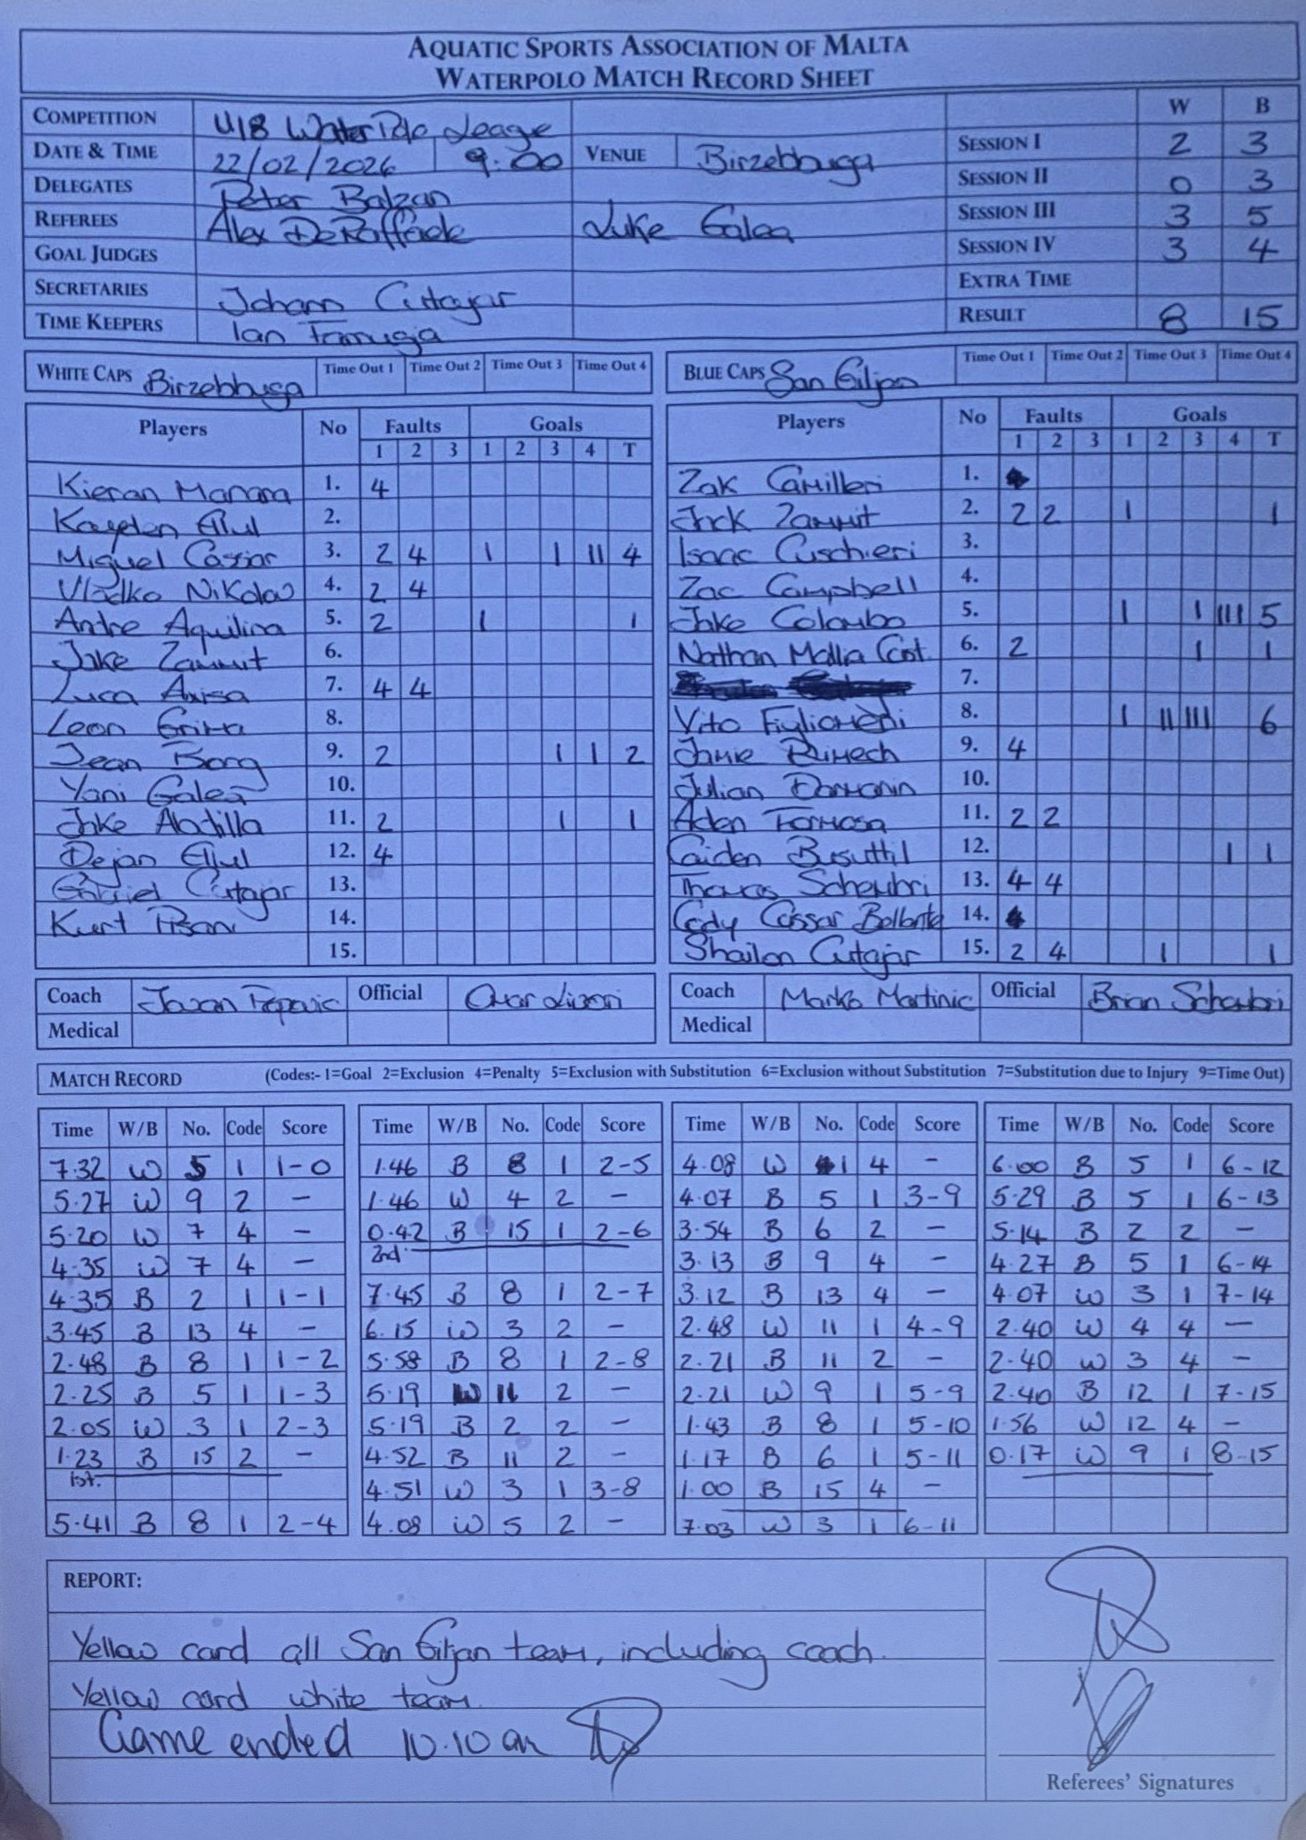 AQUATIC SPORTS ASSOCIATION OF MALTA
WATERPOLO MATCH RECORD SHEET
COMPETITION U18 Water Polo League W B
DATE & TIME 22/02/2026 9:00 VENUE Birzebbuga SESSION I 2 3
DELEGATES Peter Balzan SESSION II 0 3
REFEREES Alex DeRaffaele Luke Galea SESSION III 3 5
GOAL JUDGES SESSION IV 3 4
SECRETARIES Johann Cutajar EXTRA TIME
TIME KEEPERS Ian Farrugia RESULT 8 15
WHITE CAPS Birzebbuga Time Out 1 Time Out 2 Time Out 3 Time Out 4
BLUE CAPS San Giljan Time Out 1 Time Out 2 Time Out 3 Time Out 4
Players No Faults Goals
1 2 3 1 2 3 4 T
Kieran Manara 1. 4
Kayden Ellul 2.
Miguel Cassar 3. 2 4 1 1 11 4
Vladko Nikolov 4. 2 4
Andre Aquilina 5. 2 1 1
Jake Zammit 6.
Luca 7. 4 4
Leon 8.
Jean Borg 9. 2 1 1 2
Yani Galea 10.
Jake Abdilla 11. 2 1 1
Dejan Ellul 12. 4
Gabriel Cutajar 13.
Kurt Pisani 14.
15.
Players No Faults Goals
1 2 3 1 2 3 4 T
Zak Camilleri 1.
Jack Zammit 2. 2 2 1 1
Isaac Cuschieri 3.
Zac Campbell 4.
Jake Colombo 5. 1 1 111 5
Nathan Mallia Cost. 6. 2 1 1
7.
Vito Figliomeni 8. 1 11 111 6
Jamie Rimech 9. 4
Julian Darmanin 10.
Aden Formosa 11. 2 2
Caiden Busuttil 12. 1 1
Thomas Schembri 13. 4 4
Cody Cassar 14.
Shailon Cutajar 15. 2 4 1 1
Coach Jovan Popovic Official
Medical
Coach Marko Martinic Official Brian Schembri
Medical
MATCH RECORD (Codes:- 1=Goal 2=Exclusion 4=Penalty 5=Exclusion with Substitution 6=Exclusion without Substitution 7=Substitution due to Injury 9=Time Out)
Time W/B No. Code Score
7.32 W 5 1 1-0
5.27 W 9 2 -
5.20 W 7 4 -
4.35 W 7 4 -
4.35 B 2 1 1-1
3.45 B 13 4 -
2.48 B 8 1 1-2
2.25 B 5 1 1-3
2.05 W 3 1 2-3
1.23 B 15 2 -
1st.
5.41 B 8 1 2-4
Time W/B No. Code Score
1.46 B 8 1 2-5
1.46 W 4 2 -
0.42 B 15 1 2-6
2nd.
7.45 B 8 1 2-7
6.15 W 3 2 -
5.58 B 8 1 2-8
5.19 W 11 2 -
5.19 B 2 2 -
4.52 B 11 2 -
4.51 W 3 1 3-8
4.08 W 5 2 -
Time W/B No. Code Score
4.08 W 1 4 -
4.07 B 5 1 3-9
3.54 B 6 2 -
3.13 B 9 4 -
3.12 B 13 4 -
2.48 W 11 1 4-9
2.21 B 11 2 -
2.21 W 9 1 5-9
1.43 B 8 1 5-10
1.17 B 6 1 5-11
1.00 B 15 4 -
7.03 W 3 1 6-11
Time W/B No. Code Score
6.00 B 5 1 6-12
5.29 B 5 1 6-13
5.14 B 2 2 -
4.27 B 5 1 6-14
4.07 W 3 1 7-14
2.40 W 4 4 -
2.40 W 3 4 -
2.40 B 12 1 7-15
1.56 W 12 4 -
0.17 W 9 1 8-15
REPORT:
Yellow card all San Giljan team, including coach.
Yellow card white team.
Game ended 10.10 am
Referees' Signatures